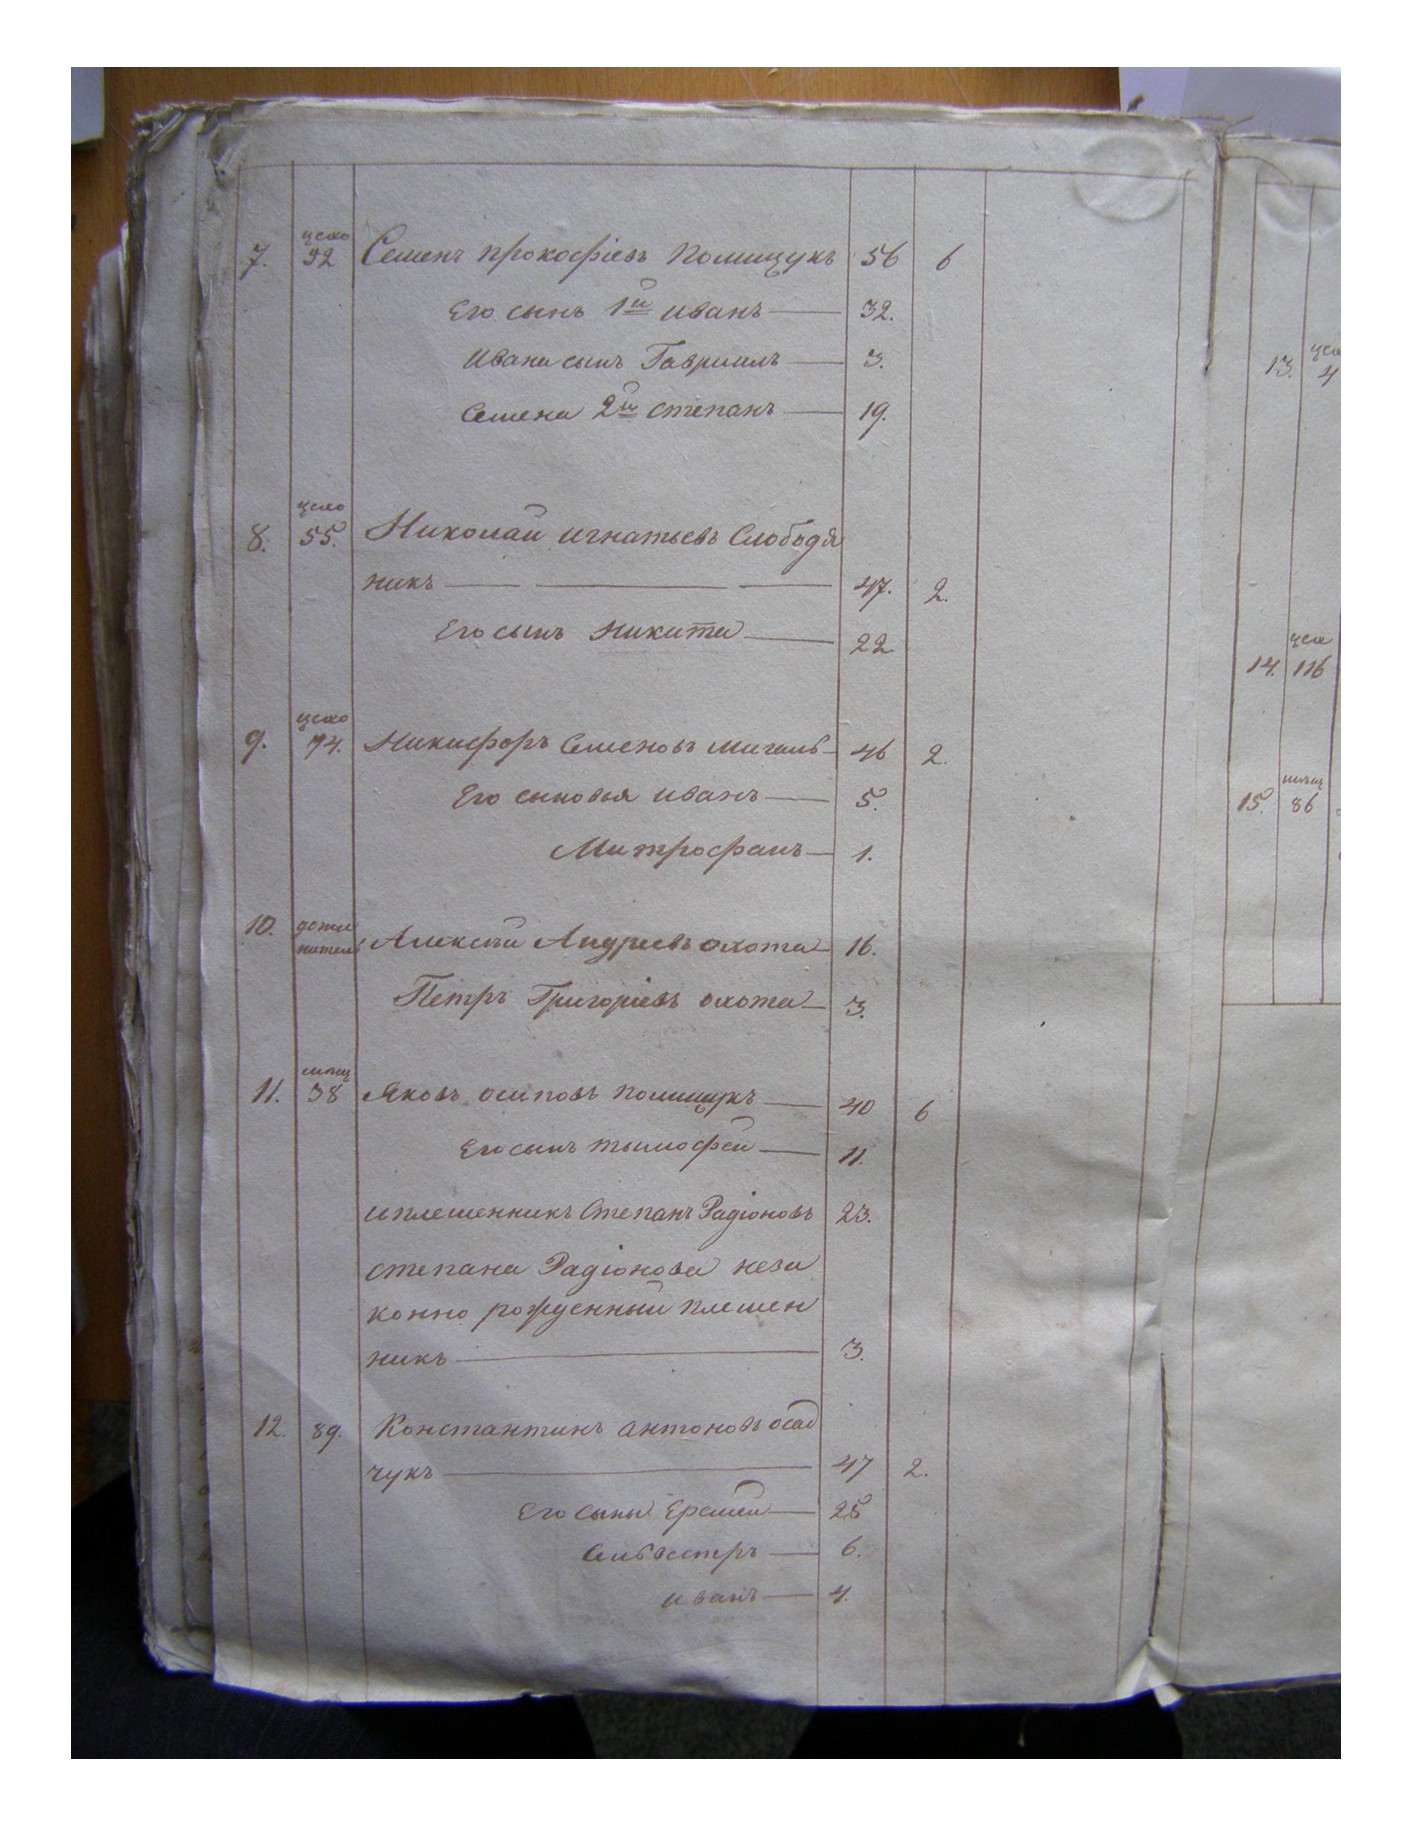 7. цехо 92 Семенъ Прокофіевъ Полищукъ 56 6
Его сынъ 1й Иванъ — 32.
Ивана сынъ Гавриилъ — 3.
Семена 2й Степанъ — 19.
8. цехо 55. Николай Игнатьевъ Слободя
никъ — — — 47. 2.
Его сынъ Никита — 22
9. цехо 74. Никифоръ Семеновъ Мигаль — 46 2.
Его сыновья Иванъ — 5.
Митрофанъ — 1.
10. допол
нитель Алексѣй Андреевъ Охота — 16.
Петръ Григоріевъ Охота — 3.
11. мѣщ 38 Яковъ Осиповъ Полищукъ — 40 6
Его сынъ Тымофей — 11.
и племенникъ Степанъ Радіоновъ 23.
Степана Радіонова неза
конно рожденный племен
никъ — 3.
12. 89. Константинъ Антоновъ Осад
чукъ — 47 2.
Его сыны Еремей — 25
Сильвестръ — 6.
Иванъ — 4.
13. цех 4
14. цех 116
15. мѣщ 86